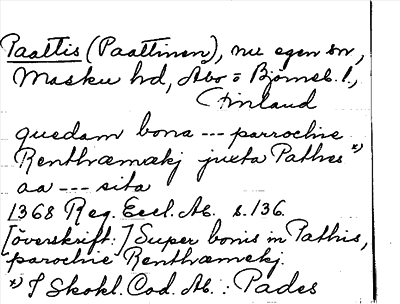 Paattis (Paattinen), nu egen sn,
Masku hd, Åbo o Björneb. l.,
Finland
quedam bona --- parrochie
Renthæmækj juxta Pathes *)
aa --- sita
1368 Reg. Eccl. Ab. s. 136.
[överskrift:] Super bonis in Pathis,
parochie Renthæmekj.
*) I Skokl. Cod. Ab.: Pades